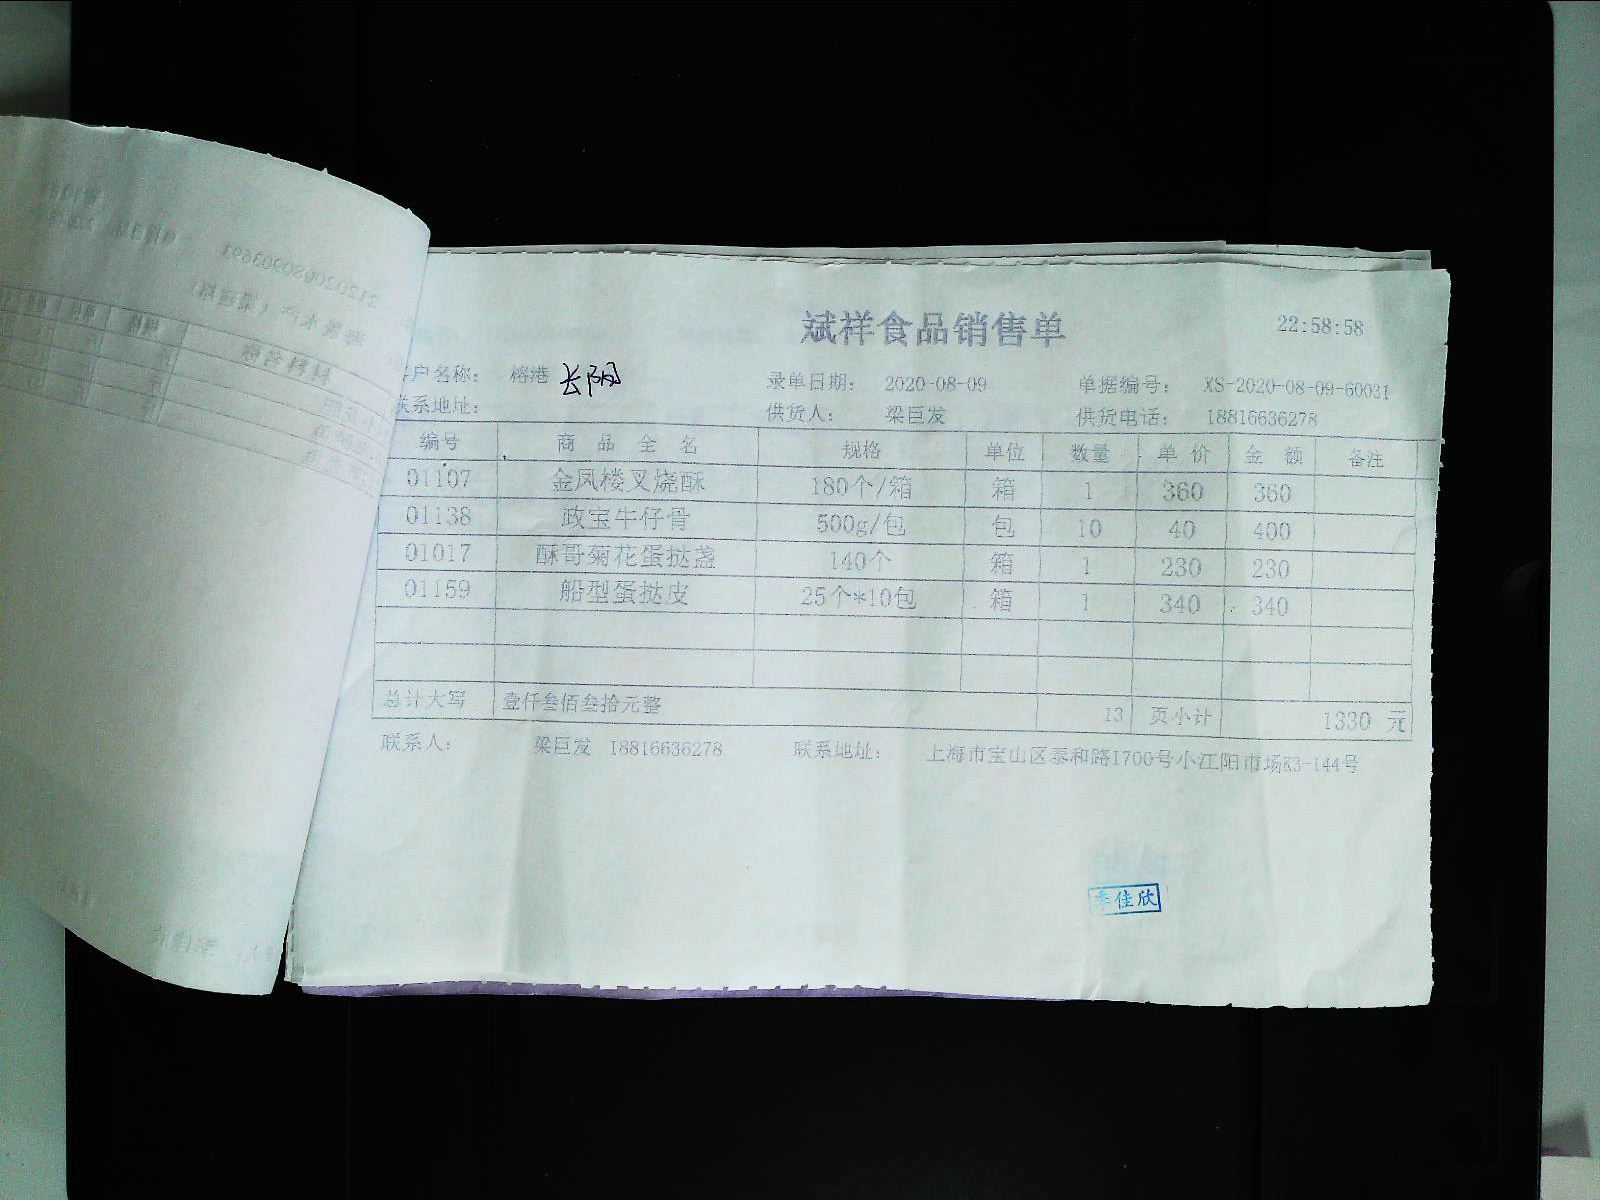 斌祥食品销售单 22:58:58
客户名称： 榕港 长阳 录单日期： 2020-08-09 单据编号： XS-2020-08-09-60031
联系地址： 供货人： 梁巨发 供货电话： 18816636278
编号 商 品 全 名 规格 单位 数量 单 价 金 额 备注
01107 金凤楼叉烧酥 180个/箱 箱 1 360 360
01138 政宝牛仔骨 500g/包 包 10 40 400
01017 酥哥菊花蛋挞盏 140个 箱 1 230 230
01159 船型蛋挞皮 25个*10包 箱 1 340 340
总计大写 壹仟叁佰叁拾元整 13 页小计 1330 元
联系人： 梁巨发 18816636278 联系地址： 上海市宝山区泰和路1700号小江阳市场K3-144号
李佳欣